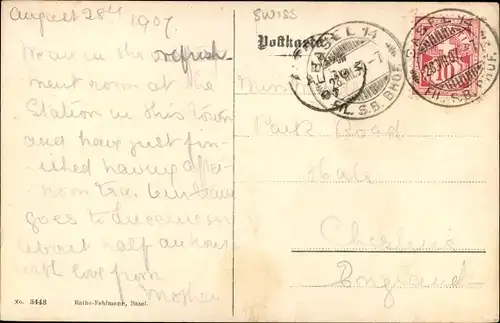 August 28th 1907
SWISS
Postkarte
We are in the refresh-
ment room at the
Station in this Town
and have just fin-
ished having after-
noon tea. Our train
goes to Lucerne in
about half an hour
with love from
Mother
Park Road
Hale
Cheshire
England
BASEL 14
S.B. BHOF.
BASEL 14
28.VIII.07
10
No. 3448 Rathe-Fehlmann, Basel.